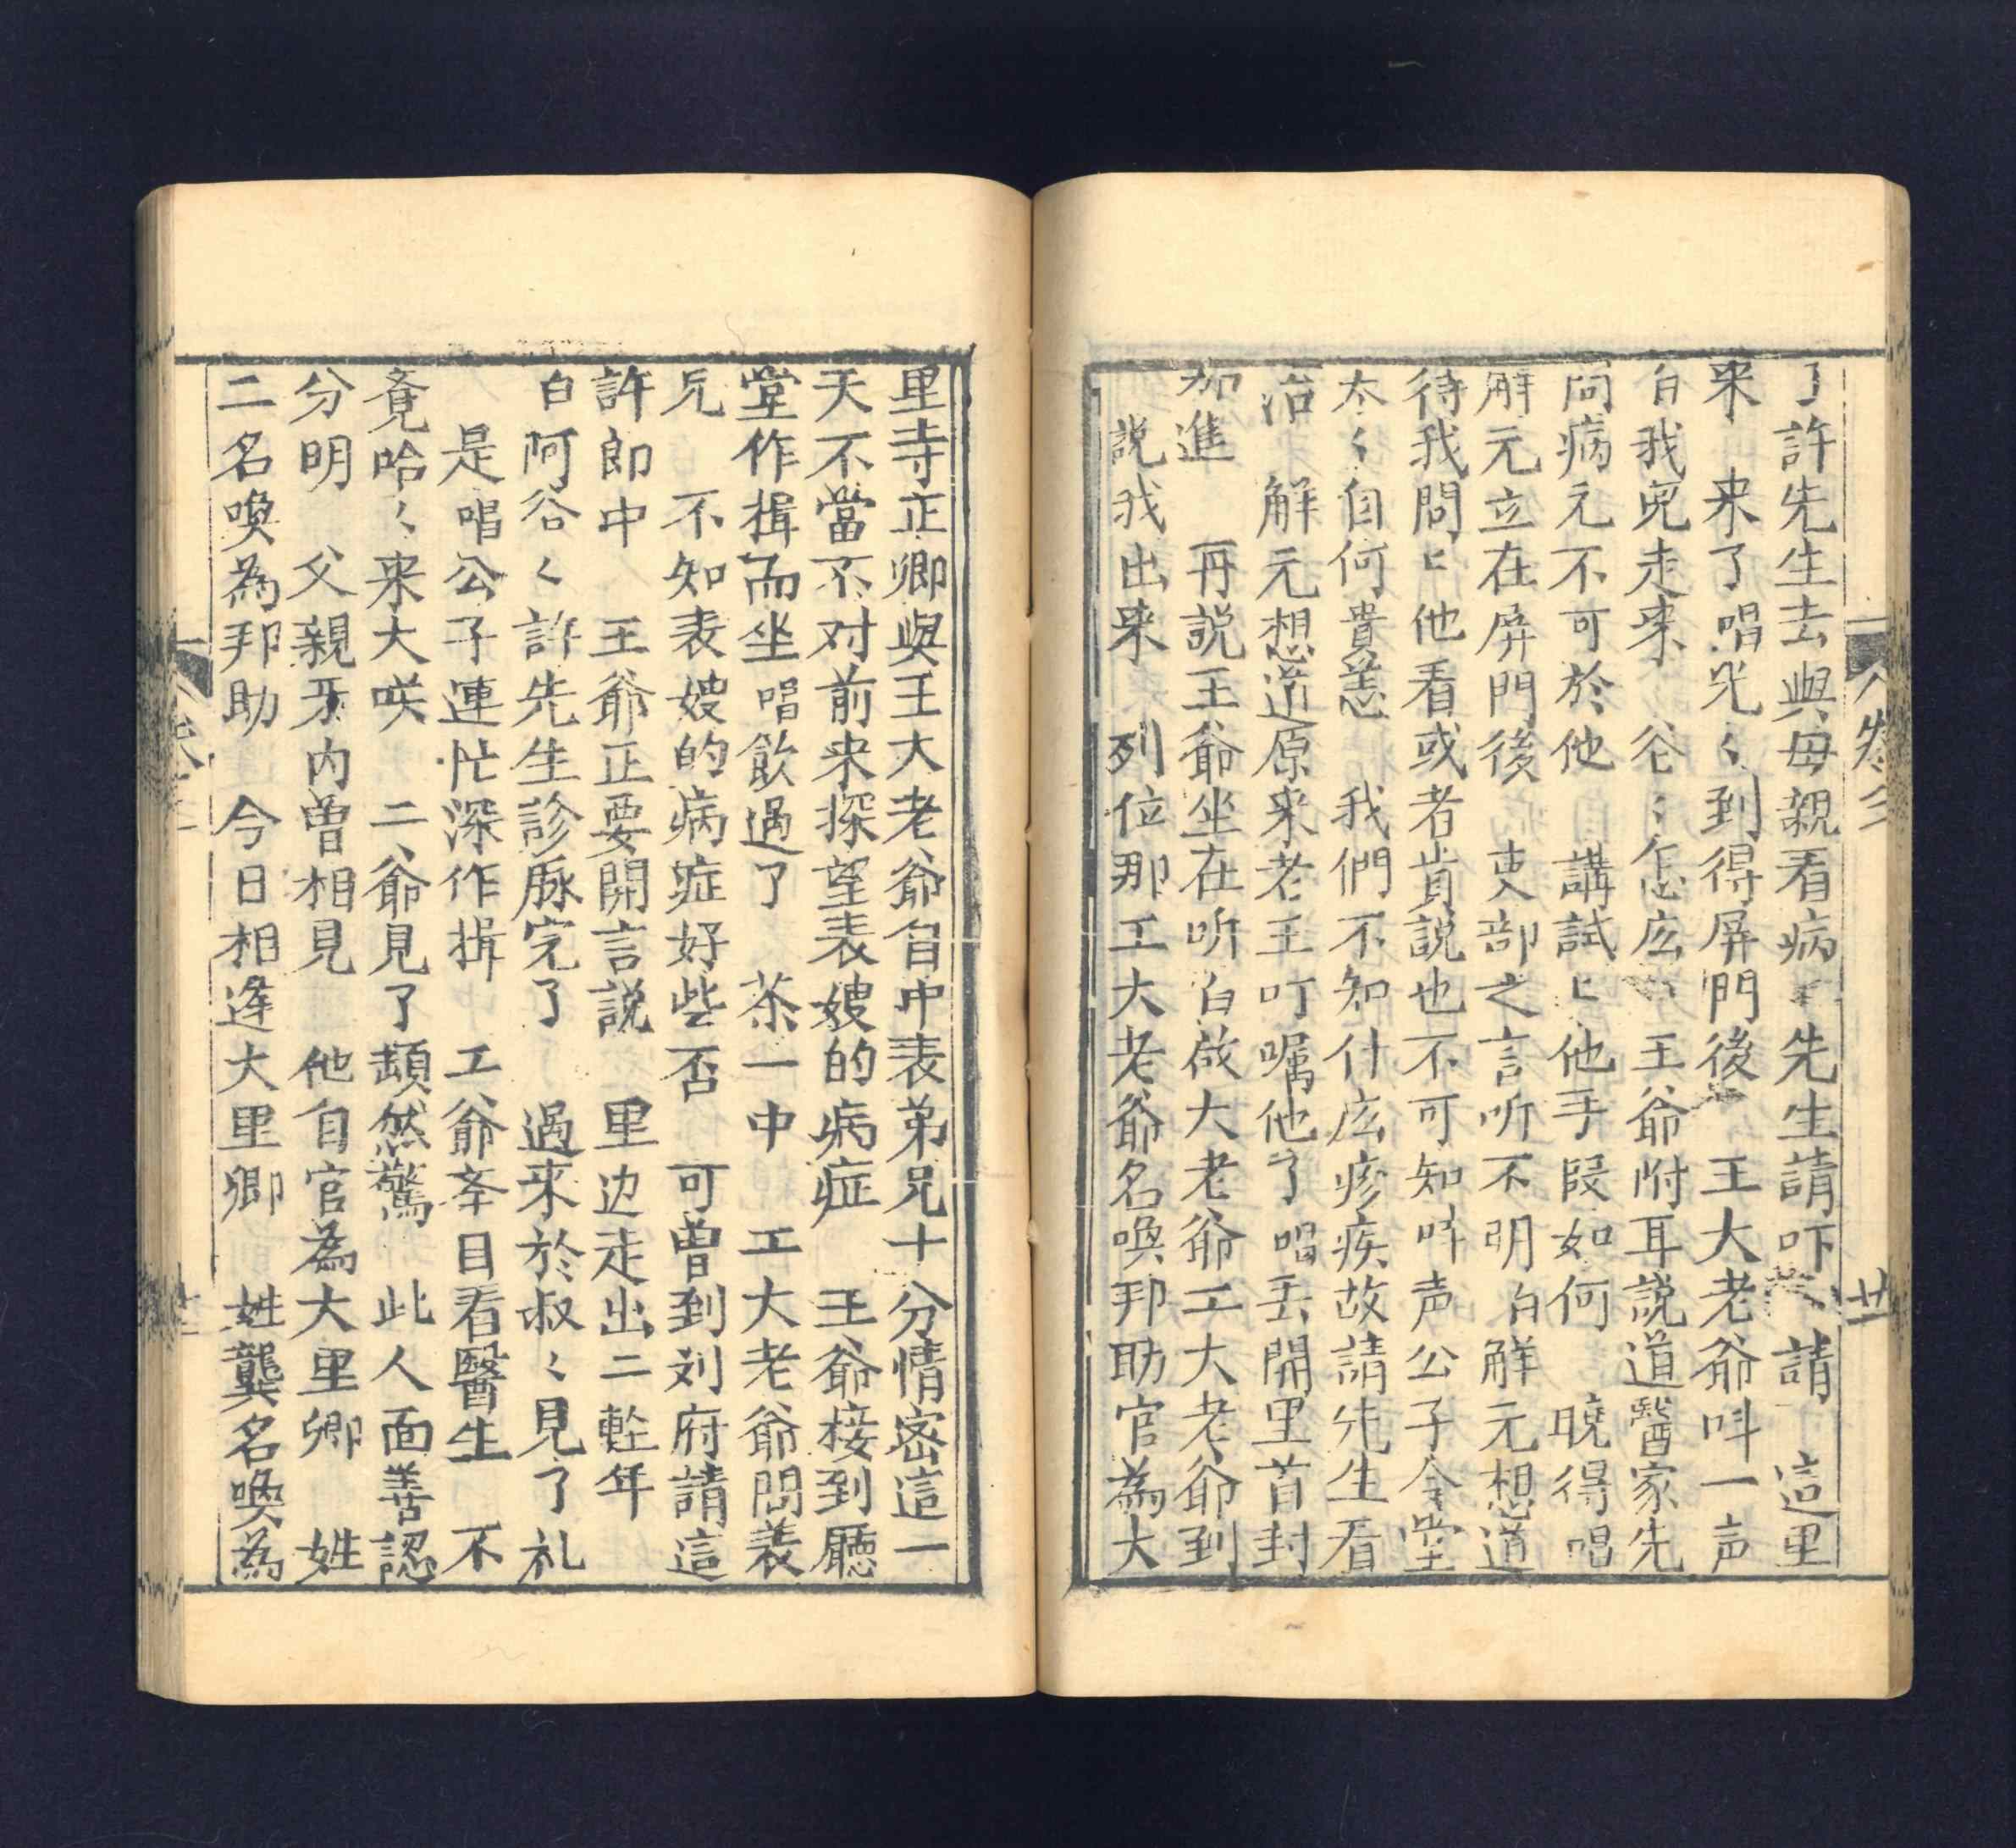 了許先生去與母親看病 先生請吓 請 這里
来 来了唱 ミ到得屏門後 王大老爺呌一声
白我兒走来 ミ怎庅 王爺附耳説道醫家先
問病元不可於他 講試ヒ他手段如何 曉得唱
解元立在屏門後 吏部之言听不明白解元想道
待我問ヒ他看或者肯説也不可知呌声公子令堂
太ミ自何貴恙 我們不知什庅疹疾故請先生看
治 解元想道原来老王叮嘱他了唱丢開里首封
加進 再説王爺坐在听白啟大老爺工大老爺到
説我出来 列位那工大老爺名喚邦助官為大
里寺正卿與王大老爺自中表弟兄十分情密這一
天不當不对前来探望表嫂的病症 王爺接到廳
堂作揖而坐唱飲過了 茶一中 工大老爺問表
兄 不知表嫂的病症好些否 可曾到刘府請這
許郎中 王爺正要開言説 里边走出二輕年
白阿谷ミ許先生診脉完了 過来於叔ミ見了礼
是唱公子連忙深作揖 工爺夲目看醫生 不
竟哈ミ来大咲 二爺見了頳然驚 此人面善認
分明 父親牙内曾相見 他自官為大里卿 姓
二名喚為邦助 今日相逢大里卿 姓龔名喚為
卷二
廿